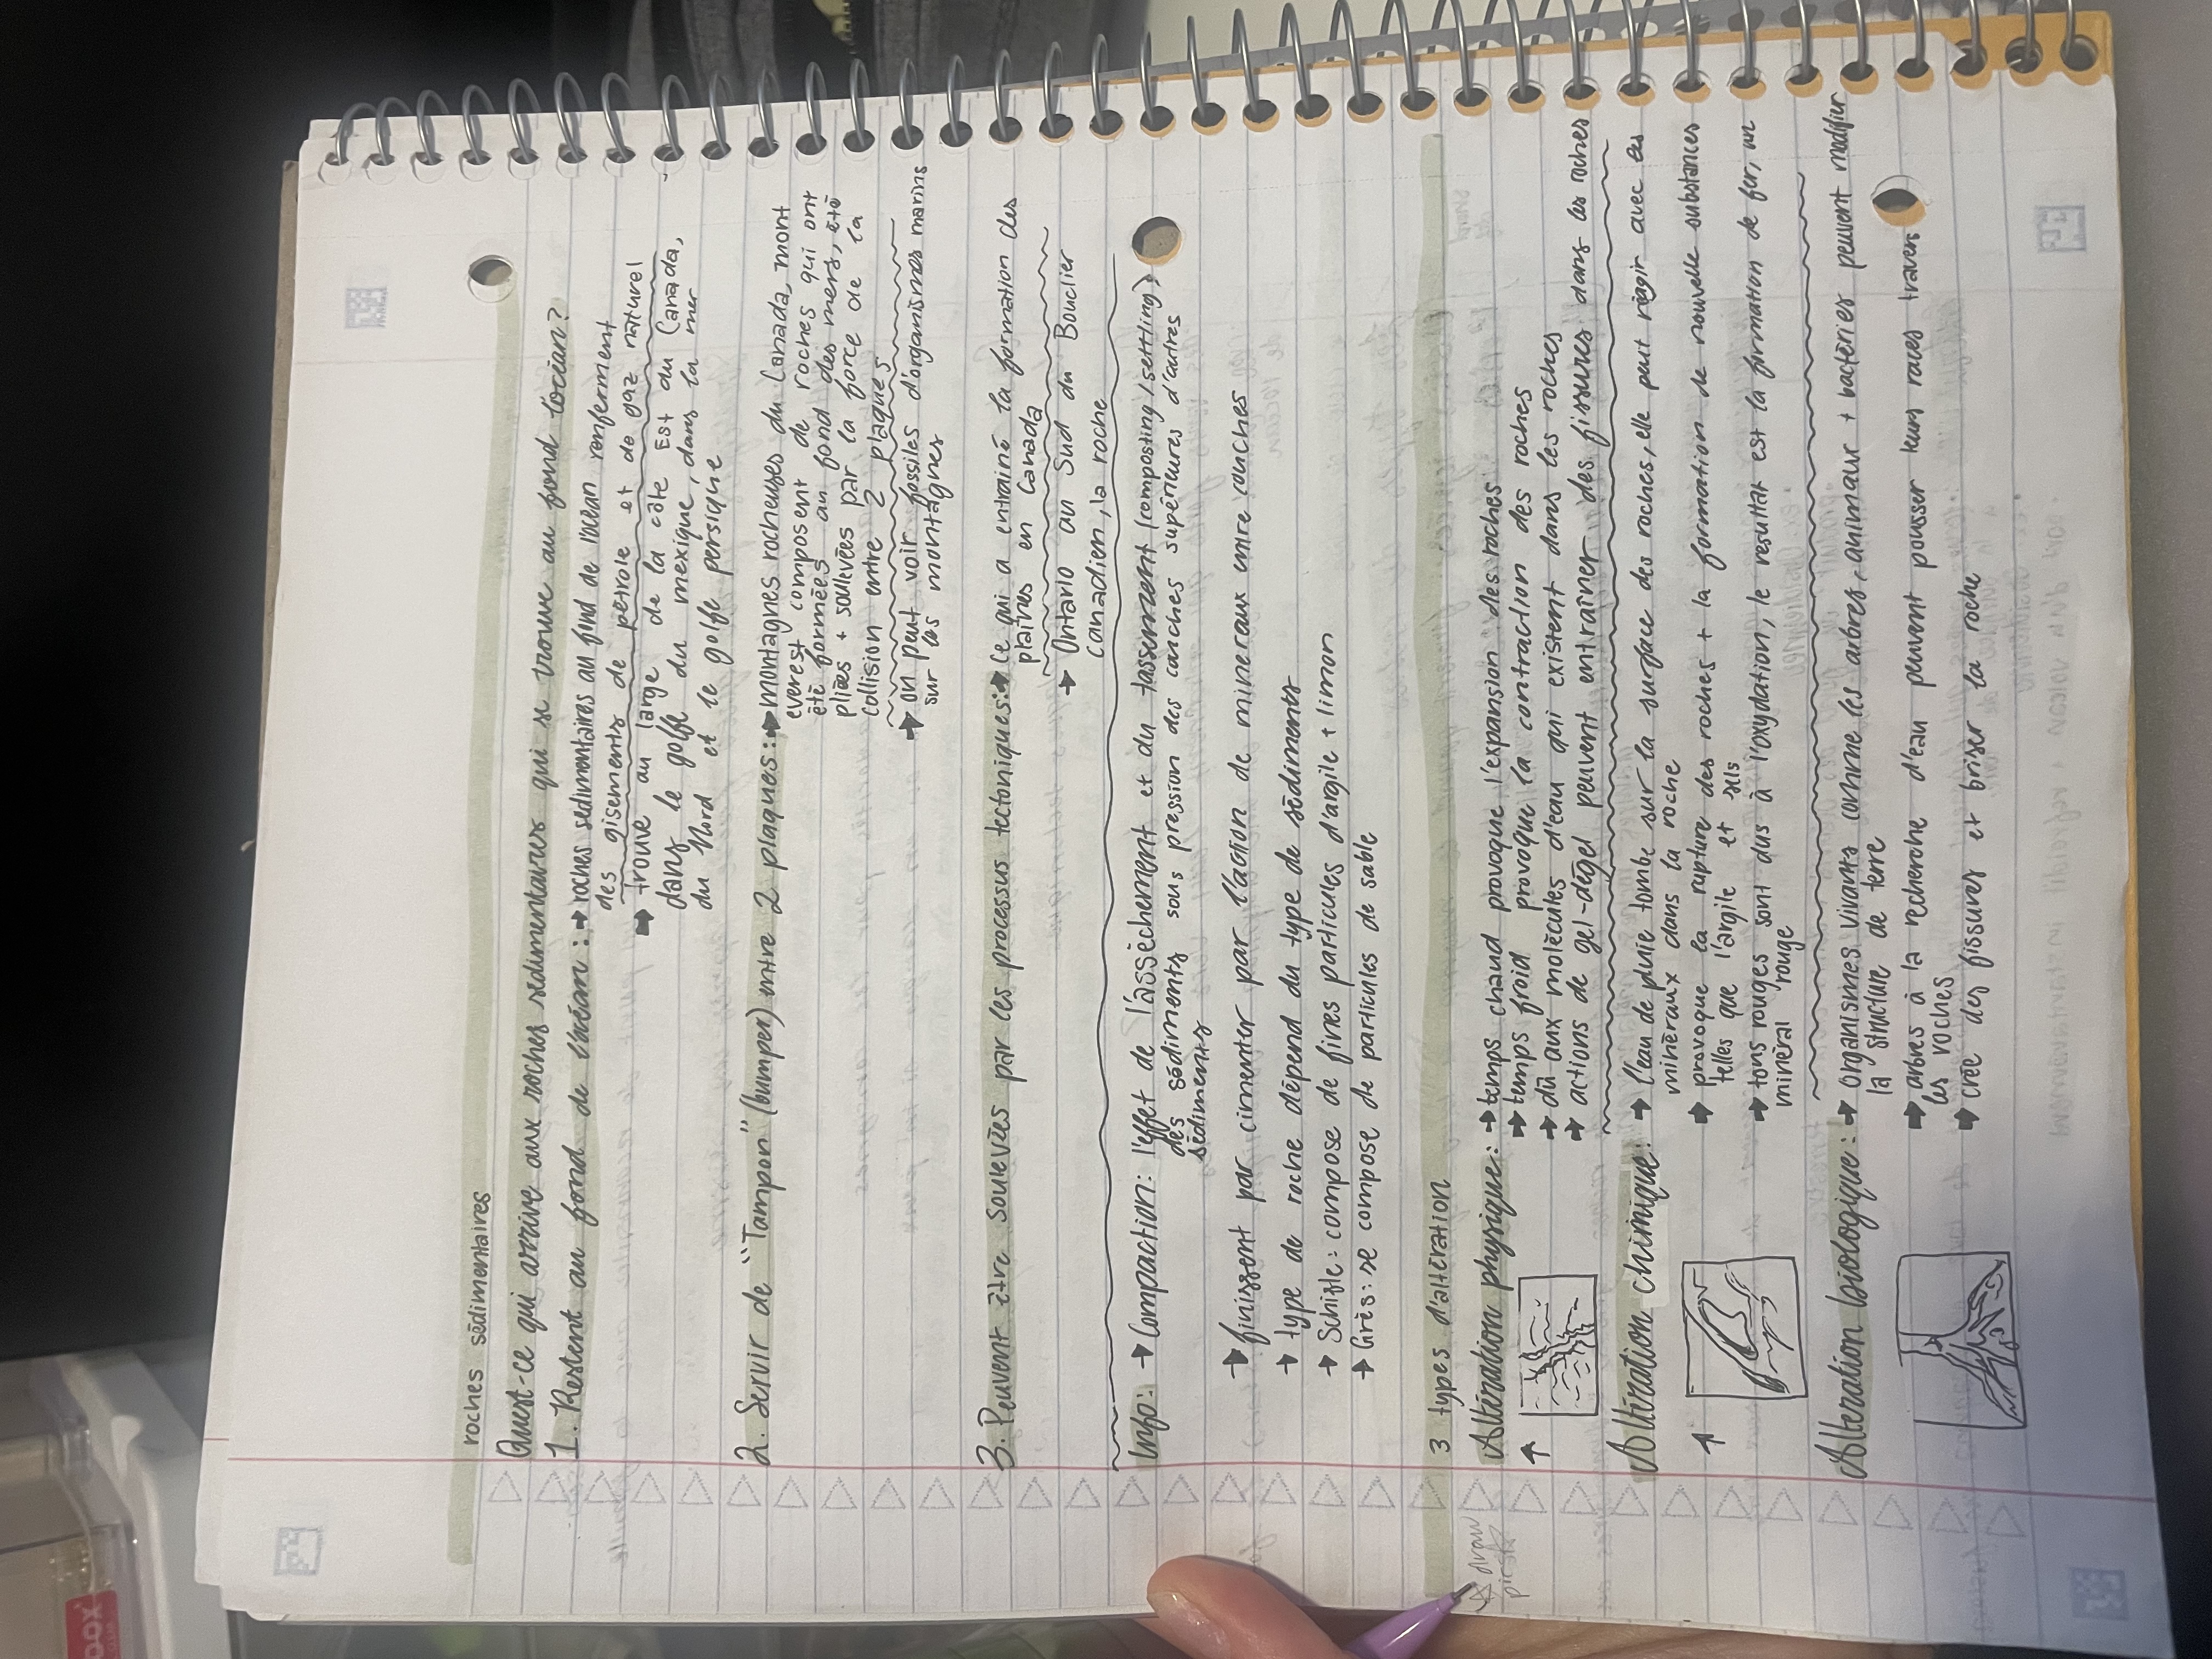 roches sédimentaires
Quest-ce qui arrive aux roches sédimentaires qui se trouve au fond l'océan?
1. Restent au fond de l'océan: → roches sedimentaires au find de l'océan renferment
des gisements de pétrole et de gaz naturel
→ trouve au large de la côte Est du Canada,
dans le golfe du mexique, dans la mer
du Nord et le golfe persique
2. Servir de "Tampon" (bumper) entre 2 plaques: → montagnes rocheuses du Canada, mont
everest composent de roches qui ont
été formées au fond des mers, été
pliées + soulevées par la force de la
collision entre 2 plaques
→ on peut voir fossiles d'organismes marins
sur les montagnes
3. Peuvent être soulevées par les processus tectoniques: → ce qui a entrainé la formation des
plaines en Canada
→ Ontario au Sud du Bouclier
Canadien, la roche
Info: → Compaction: l'effet de l'assèchement et du tassement (composting/settling)
des sédiments sous pression des couches supérieures d'autres
sédiments
→ finissent par cimenter par l'action de mineraux entre couches
→ type de roche dépend du type de sédiments
→ Schiste: compose de fines particules d'argile + limon
→ Grès: se compose de particules de sable
3 types d'altération
☆ draw
Altération physique: → temps chaud provoque l'expansion des roches
→ temps froid provoque la contraction des roches
→ dû aux molécules d'eau qui existent dans les roches
→ actions de gel-dégel peuvent entraîner des fissures dans les roches
Altération chimique: → l'eau de pluie tombe sur la surface des roches, elle peut réagir avec les
minéraux dans la roche
→ provoque la rupture des roches + la formation de nouvelle substances
telles que l'argile et sels
→ tons rouges sont dus à l'oxydation, le resultat est la formation de fer, un
minéral rouge
Altération biologique: → organismes vivants comme les arbres, animaux + bactéries peuvent modifier
la structure de terre
→ arbres à la recherche d'eau peuvent pousser leurs racines travers
les roches
→ crée des fissures et briser la roche